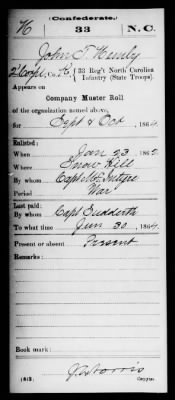 (Confederate.)
H 33 N.C.
John T. Hemly
2" Corpl, Co. B, 33 Reg't North Carolina
Infantry (State Troops).
Appears on
Company Muster Roll
of the organization named above,
for Sept & Oct , 1864.
Enlisted:
When Jan 23 , 1862
Where Snow Hill
By whom Capt McIntyre
Period War
Last paid:
By whom Capt Sudderth
To what time Jun 30 , 1864
Present or absent Present
Remarks:
Book mark:
(642)
Copyist.